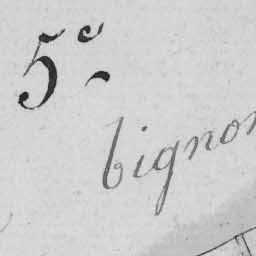 5e
bignon